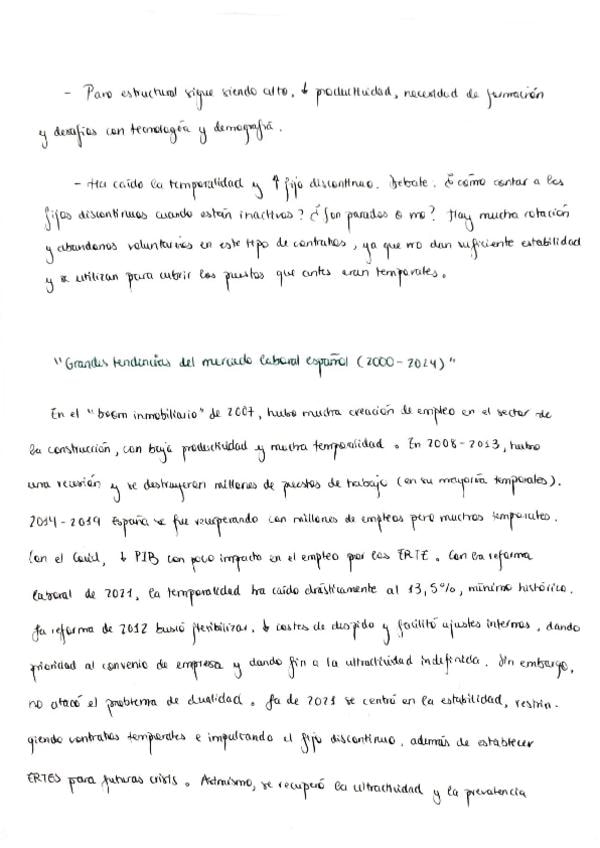 - Paro estructural sigue siendo alto, ↓ productividad, necesidad de formación
y desafíos con tecnología y demografía.
- Ha caído la temporalidad y ↑ fijo discontinuo. Debate. ¿cómo contar a los
fijos discontinuos cuando están inactivos? ¿Son parados o no? Hay mucha rotación
y abandonos voluntarios en este tipo de contratos, ya que no dan suficiente estabilidad
y se utilizan para cubrir los puestos que antes eran temporales.
"Grandes tendencias del mercado laboral español (2000-2024)"
En el "boom inmobiliario" de 2007, hubo mucha creación de empleo en el sector de
la construcción, con baja productividad y mucha temporalidad. En 2008-2013, hubo
una recesión y se destruyeron millones de puestos de trabajo (en su mayoría temporales).
2014-2019 España se fue recuperando con millones de empleos pero muchos temporales.
Con el Covid, ↓ PIB con poco impacto en el empleo por los ERTE. Con la reforma
laboral de 2021, la temporalidad ha caído drásticamente al 13,5%, mínimo histórico.
La reforma de 2012 buscó flexibilizar, ↓ costes de despido y facilitó ajustes internos, dando
prioridad al convenio de empresa y dando fin a la ultractividad indefinida. Sin embargo,
no atacó el problema de dualidad. La de 2021 se centró en la estabilidad, restrin-
giendo contratos temporales e impulsando el fijo discontinuo, además de establecer
ERTES para futuras crisis. Asimismo, se recuperó la ultractividad y la prevalencia